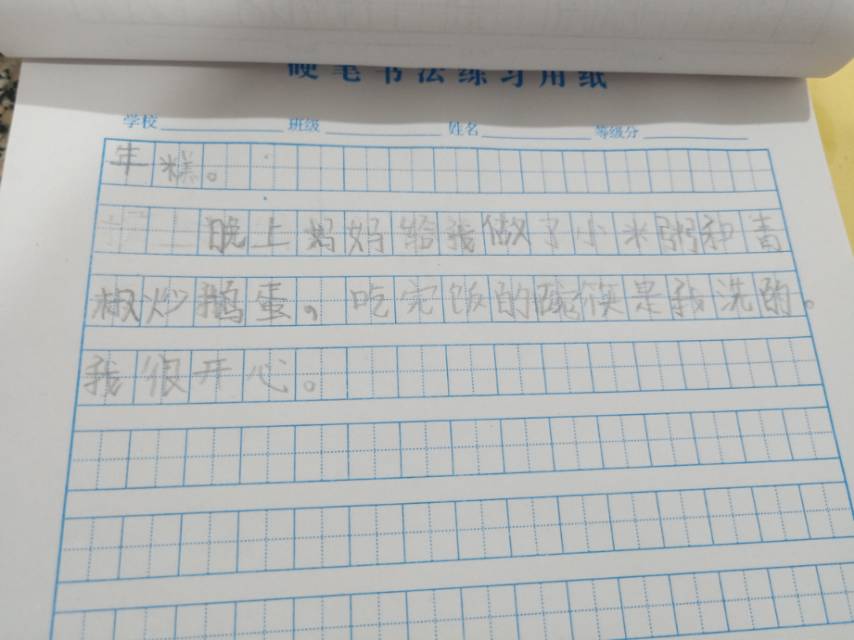 硬笔书法练习用纸
学校 班级 姓名 等级分
年糕。
晚上妈妈给我做了小米粥和青
椒炒鹅蛋。吃完饭的碗筷是我洗的。
我很开心。